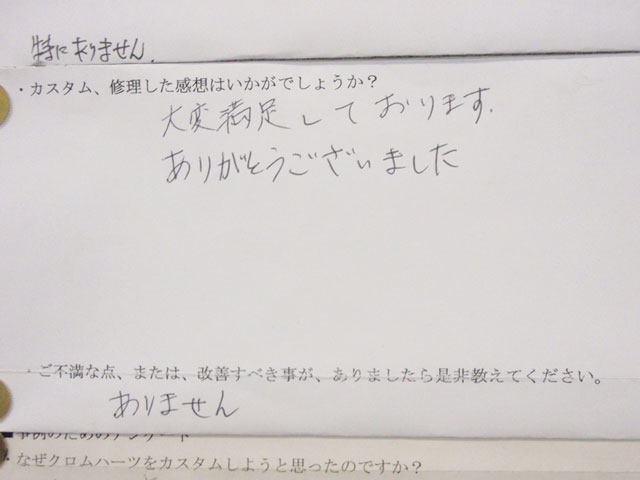 特にありません.
・カスタム、修理した感想はいかがでしょうか？
大変満足しております.
ありがとうございました
・ご不満な点、または、改善すべき事が、ありましたら是非教えてください。
ありません
■事例のためのアンケート
・なぜクロムハーツをカスタムしようと思ったのですか？